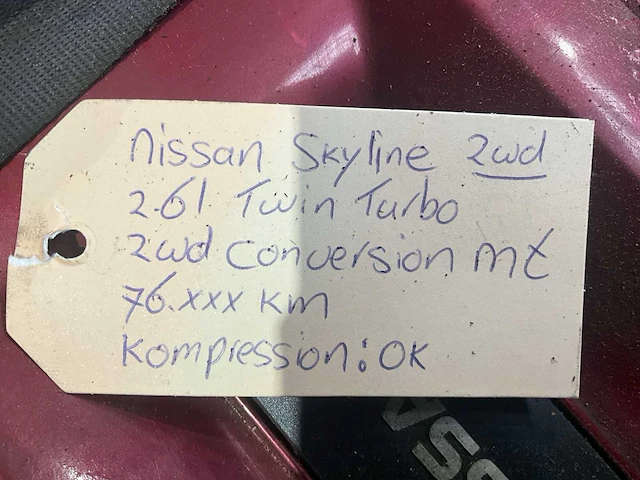 Nissan Skyline 2wd
2.6l Twin Turbo
2wd conversion MT
76.xxx km
Kompression: OK